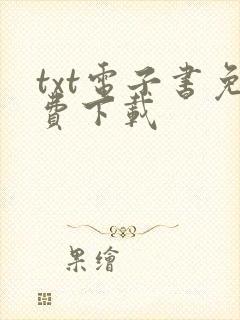 txt電子書免
費下載
果繪